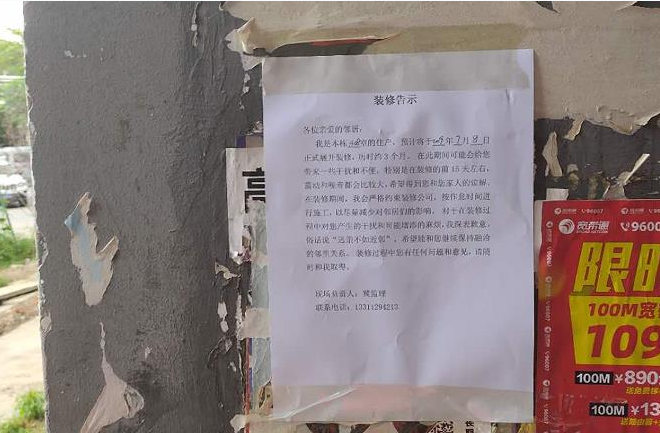 装修告示
各位亲爱的邻居:
我是本栋 室的住户, 预计将于 年7月8日
正式展开装修, 历时约3个月。在此期间可能会给您
带来一些干扰和不便, 特别是在装修的前15天左右,
震动和噪音都会比较大, 希望得到您和您家人的谅解。
在装修期间, 我会严格约束装修公司, 按作息时间进
行施工, 以尽量减少对邻居们的影响。对于在装修过
程中对您产生的干扰和可能增添的麻烦, 我深表歉意。
俗话说“远亲不如近邻”, 希望能和您继续保持融洽
的邻里关系。装修过程中您有任何问题和意见, 请随
时和我取得。
现场负责人: 黄监理
联系电话: 13311294213
宽带通
96007
宽带通
V96007
宽带通
V9600
限时
100M宽
109
100M ¥890
100M ¥13